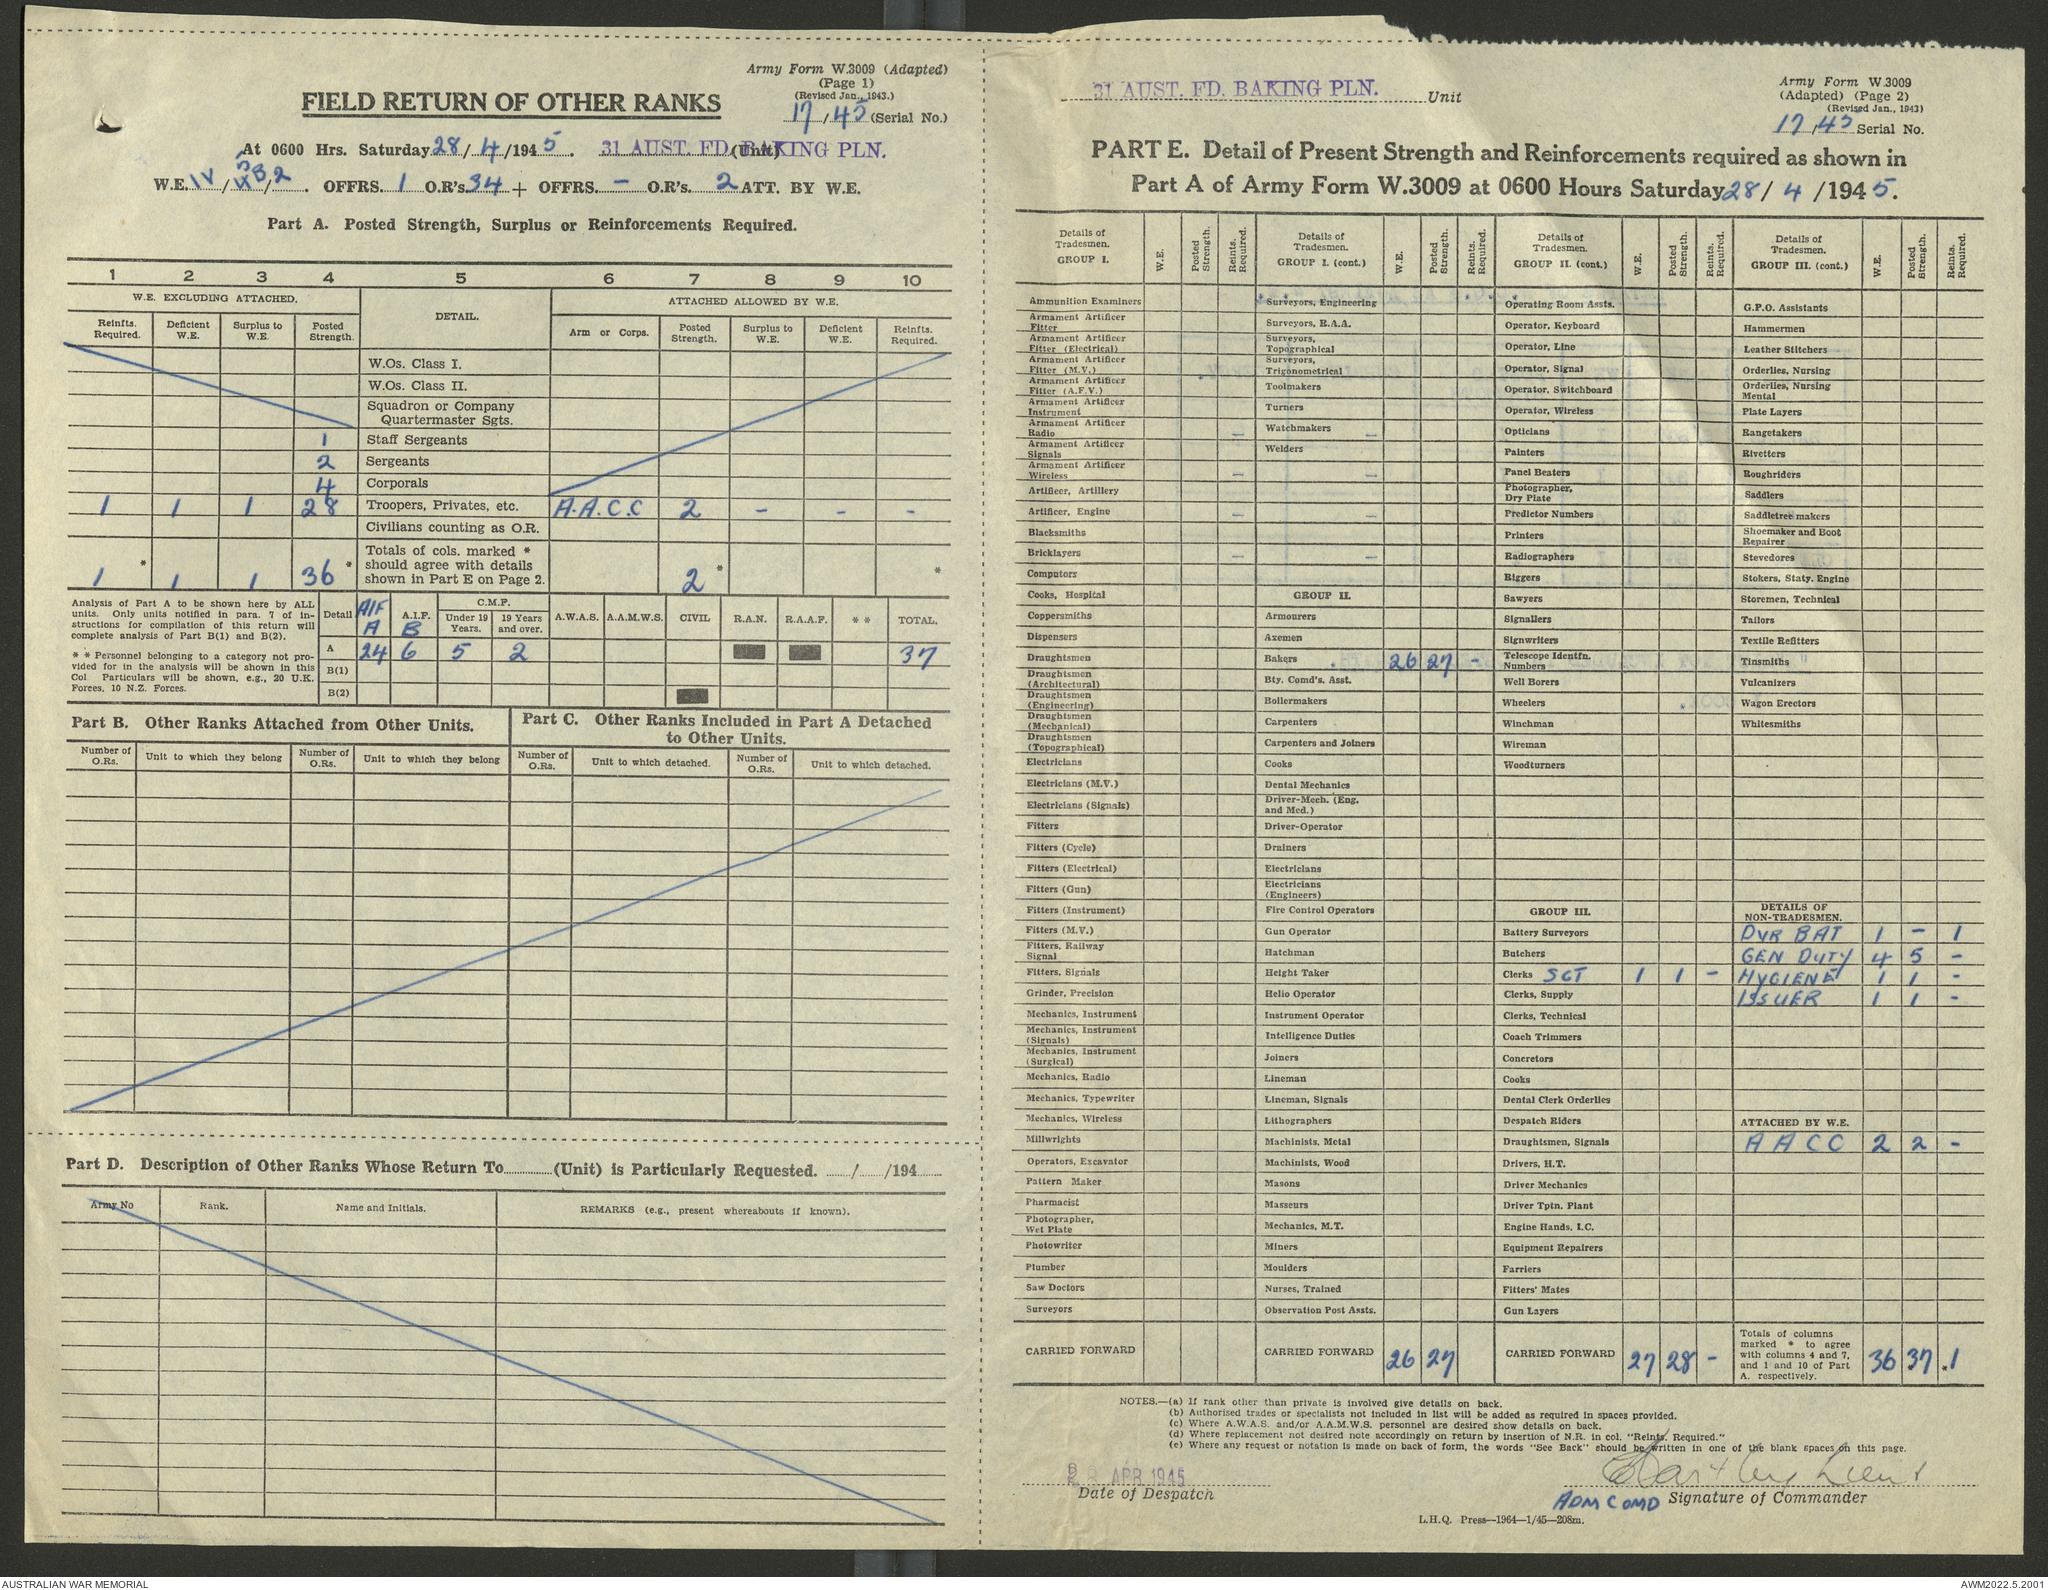 Army Form W.3009 (Adapted)
(Page 1)
(Revised Jan., 1943.)
FIELD RETURN OF OTHER RANKS
17/45 (Serial No.)
At 0600 Hrs. Saturday 28/4/1945. 31 AUST. FD. BAKING PLN. (Unit)
W.E. IV/ /2. OFFRS. 1 O.R's. 34 + OFFRS. – O.R's. 2 ATT. BY W.E.
Part A. Posted Strength, Surplus or Reinforcements Required.
1 2 3 4 5 6 7 8 9 10
W.E. EXCLUDING ATTACHED. DETAIL. ATTACHED ALLOWED BY W.E.
Reinfts. Required. Deficient W.E. Surplus to W.E. Posted Strength. Arm or Corps. Posted Strength. Surplus to W.E. Deficient W.E. Reinfts. Required.
W.Os. Class I.
W.Os. Class II.
Squadron or Company Quartermaster Sgts.
1 Staff Sergeants
2 Sergeants
4 Corporals
1 1 1 28 Troopers, Privates, etc. A.A.C.C 2 – – –
Civilians counting as O.R.
1 * 1 1 36 * Totals of cols. marked * should agree with details shown in Part E on Page 2. 2 * *
Analysis of Part A to be shown here by ALL units. Only units notified in para. 7 of instructions for compilation of this return will complete analysis of Part B(1) and B(2).
* * Personnel belonging to a category not provided for in the analysis will be shown in this Col. Particulars will be shown, e.g., 20 U.K. Forces, 10 N.Z. Forces.
Detail AIF A A.I.F. B C.M.F. Under 19 Years. 19 Years and over. A.W.A.S. A.A.M.W.S. CIVIL R.A.N. R.A.A.F. * * TOTAL.
A 24 6 5 2 37
B(1)
B(2)
Part B. Other Ranks Attached from Other Units.
Part C. Other Ranks Included in Part A Detached to Other Units.
Number of O.Rs. Unit to which they belong Number of O.Rs. Unit to which they belong Number of O.Rs. Unit to which detached. Number of O.Rs. Unit to which detached.
Part D. Description of Other Ranks Whose Return To (Unit) is Particularly Requested. / /194
Army No Rank. Name and Initials. REMARKS (e.g., present whereabouts if known).
31 AUST. FD. BAKING PLN. Unit
Army Form W.3009
(Adapted) (Page 2)
(Revised Jan., 1943)
17/45 Serial No.
PART E. Detail of Present Strength and Reinforcements required as shown in
Part A of Army Form W.3009 at 0600 Hours Saturday 28/4/1945.
Details of Tradesmen. GROUP I. W.E. Posted Strength. Reints. Required.
Ammunition Examiners
Armament Artificer Fitter
Armament Artificer Fitter (Electrical)
Armament Artificer Fitter (M.V.)
Armament Artificer Fitter (A.F.V.)
Armament Artificer Instrument
Armament Artificer Radio
Armament Artificer Signals
Armament Artificer Wireless
Artificer, Artillery
Artificer, Engine
Blacksmiths
Bricklayers
Computors
Cooks, Hospital
Coppersmiths
Dispensers
Draughtsmen
Draughtsmen (Architectural)
Draughtsmen (Engineering)
Draughtsmen (Mechanical)
Draughtsmen (Topographical)
Electricians
Electricians (M.V.)
Electricians (Signals)
Fitters
Fitters (Cycle)
Fitters (Electrical)
Fitters (Gun)
Fitters (Instrument)
Fitters (M.V.)
Fitters, Railway Signal
Fitters, Signals
Grinder, Precision
Mechanics, Instrument
Mechanics, Instrument (Signals)
Mechanics, Instrument (Surgical)
Mechanics, Radio
Mechanics, Typewriter
Mechanics, Wireless
Millwrights
Operators, Excavator
Pattern Maker
Pharmacist
Photographer, Wet Plate
Photowriter
Plumber
Saw Doctors
Surveyors
CARRIED FORWARD
Details of Tradesmen. GROUP I. (cont.) W.E. Posted Strength. Reints. Required.
Surveyors, Engineering
Surveyors, R.A.A.
Surveyors, Topographical
Surveyors, Trigonometrical
Toolmakers
Turners
Watchmakers
Welders
GROUP II.
Armourers
Axemen
Bakers 26 27 –
Bty. Comd's. Asst.
Boilermakers
Carpenters
Carpenters and Joiners
Cooks
Dental Mechanics
Driver-Mech. (Eng. and Med.)
Driver-Operator
Drainers
Electricians
Electricians (Engineers)
Fire Control Operators
Gun Operator
Hatchman
Height Taker
Helio Operator
Instrument Operator
Intelligence Duties
Joiners
Lineman
Lineman, Signals
Lithographers
Machinists, Metal
Machinists, Wood
Masons
Masseurs
Mechanics, M.T.
Miners
Moulders
Nurses, Trained
Observation Post Assts.
CARRIED FORWARD 26 27
Details of Tradesmen. GROUP II. (cont.) W.E. Posted Strength. Reints. Required.
Operating Room Assts.
Operator, Keyboard
Operator, Line
Operator, Signal
Operator, Switchboard
Operator, Wireless
Opticians
Painters
Panel Beaters
Photographer, Dry Plate
Predictor Numbers
Printers
Radiographers
Riggers
Sawyers
Signallers
Signwriters
Telescope Identfn. Numbers
Well Borers
Wheelers
Winchman
Wireman
Woodturners
GROUP III.
Battery Surveyors
Butchers
Clerks SGT 1 1 –
Clerks, Supply
Clerks, Technical
Coach Trimmers
Concretors
Cooks
Dental Clerk Orderlies
Despatch Riders
Draughtsmen, Signals
Drivers, H.T.
Driver Mechanics
Driver Tptn. Plant
Engine Hands, I.C.
Equipment Repairers
Farriers
Fitters' Mates
Gun Layers
CARRIED FORWARD 27 28 –
Details of Tradesmen. GROUP III. (cont.) W.E. Posted Strength. Reints. Required.
G.P.O. Assistants
Hammermen
Leather Stitchers
Orderlies, Nursing
Orderlies, Nursing Mental
Plate Layers
Rangetakers
Rivetters
Roughriders
Saddlers
Saddletree makers
Shoemaker and Boot Repairer
Stevedores
Stokers, Staty. Engine
Storemen, Technical
Tailors
Textile Refitters
Tinsmiths
Vulcanizers
Wagon Erectors
Whitesmiths
DETAILS OF NON-TRADESMEN.
DVR BAT 1 – 1
GEN DUTY 4 5 –
HYGIENE 1 1 –
ISSUER 1 1 –
ATTACHED BY W.E.
AACC 2 2 –
Totals of columns marked * to agree with columns 4 and 7, and 1 and 10 of Part A. respectively. 36 37 *1
NOTES.—(a) If rank other than private is involved give details on back.
(b) Authorised trades or specialists not included in list will be added as required in spaces provided.
(c) Where A.W.A.S. and/or A.A.M.W.S. personnel are desired show details on back.
(d) Where replacement not desired note accordingly on return by insertion of N.R. in col. "Reints. Required."
(e) Where any request or notation is made on back of form, the words "See Back" should be written in one of the blank spaces on this page.
28 APR 1945
Date of Despatch
Lieut
ADM COMD Signature of Commander
L.H.Q. Press—1964—1/45—208m.
AUSTRALIAN WAR MEMORIAL
AWM2022.5.2001